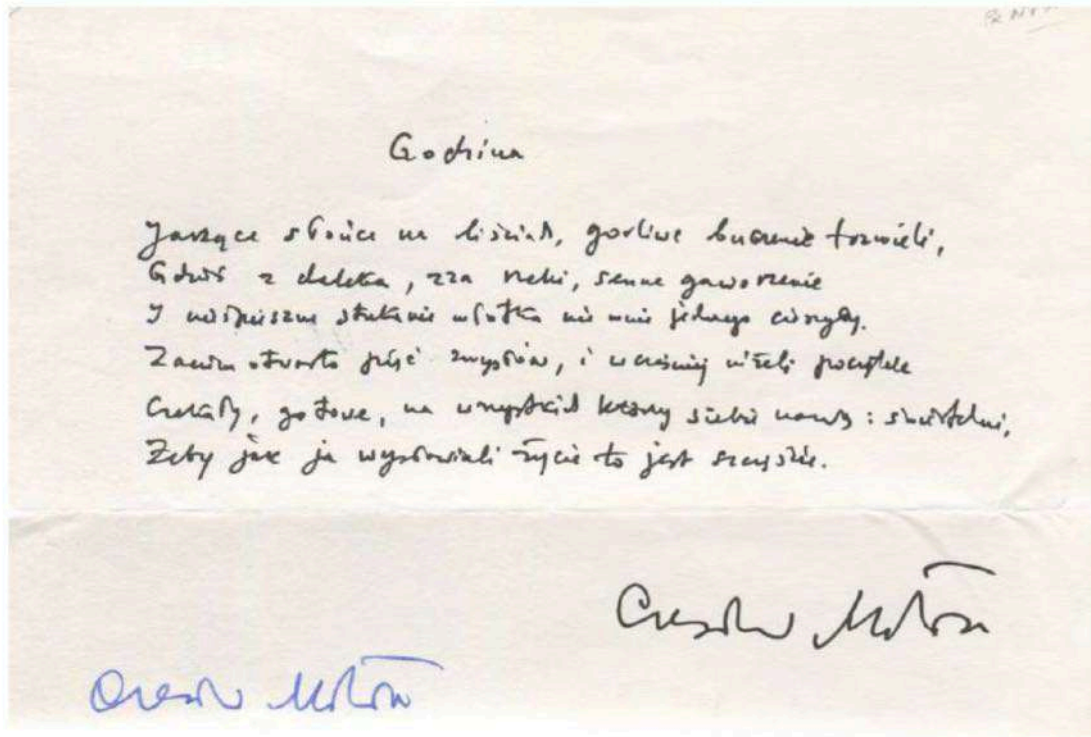 Godzina
Jarzące słońce na liściach, gorliwe buczenie trzmieli,
Gdzieś z daleka, zza rzeki, senne gaworzenie
I niespieszne stukanie młotka nie mnie jednego cieszyły.
Zanim otwarto pięć zmysłów, i wcześniej niżeli początek
Czekały, gotowe, na wszystkich którzy siebie nazwą: śmiertelni,
Żeby jak ja wysławiali życie to jest szczęście.
Czesław Miłosz
Czesław Miłosz